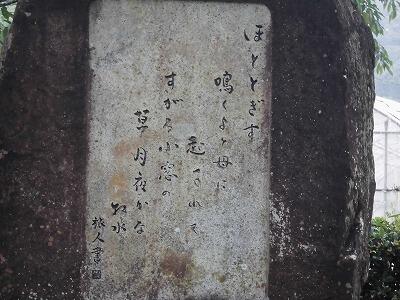 ほととぎす
鳴くよと母に
起されて
すがる小窓の
草月夜かな
牧水
旅人